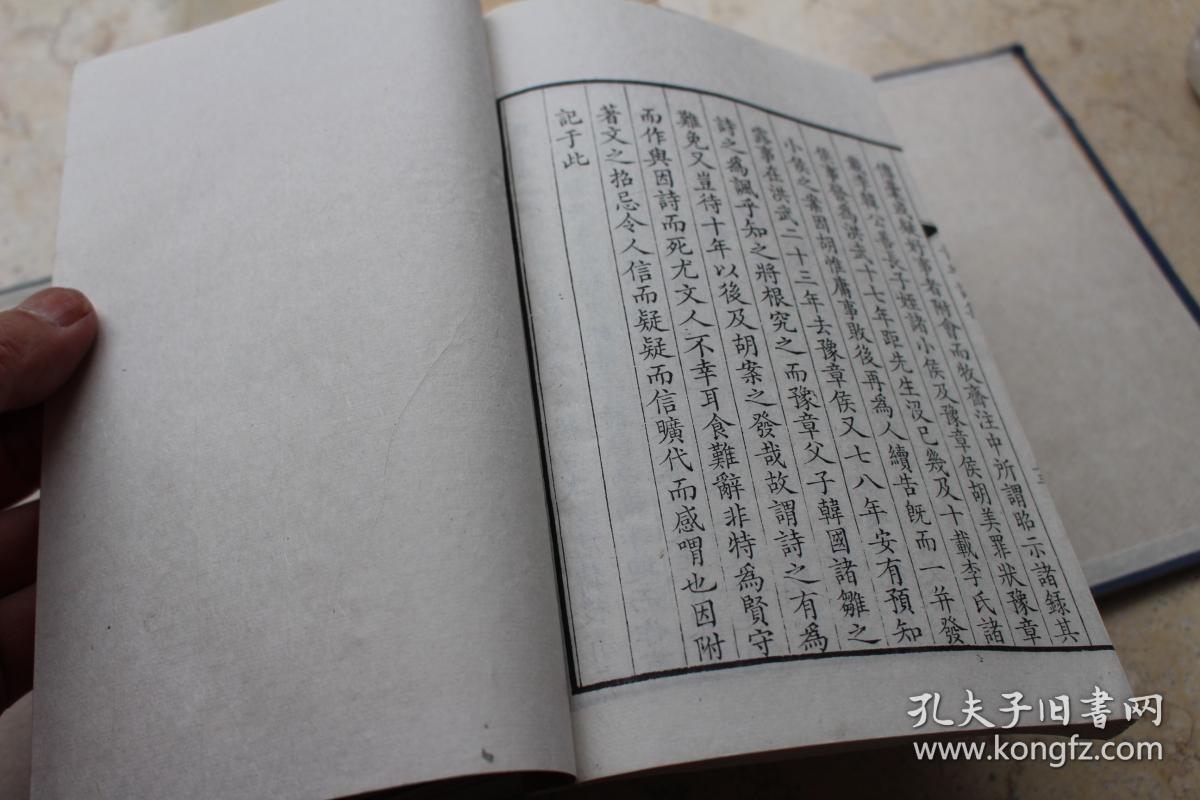 疑好事者附會而牧齋注中所謂昭示諸錄其
李韓公善長子姪諸小侯及豫章侯胡美罪狀豫章
侯事發爲洪武十七年距先生沒已幾及十載李氏諸
小侯之案因胡惟庸事敗後再爲人續告旣而一并發
露事在洪武二十三年去豫章侯又七八年安有預知
詩之爲諷乎知之將根究之而豫章父子韓國諸雛之
難免又豈待十年以後及胡案之發哉故謂詩之有爲
而作與因詩而死尤文人不幸耳食難辭非特爲賢守
著文之招忌令人信而疑疑而信曠代而感喟也因附
記于此
三
孔夫子旧書网
www.kongfz.com